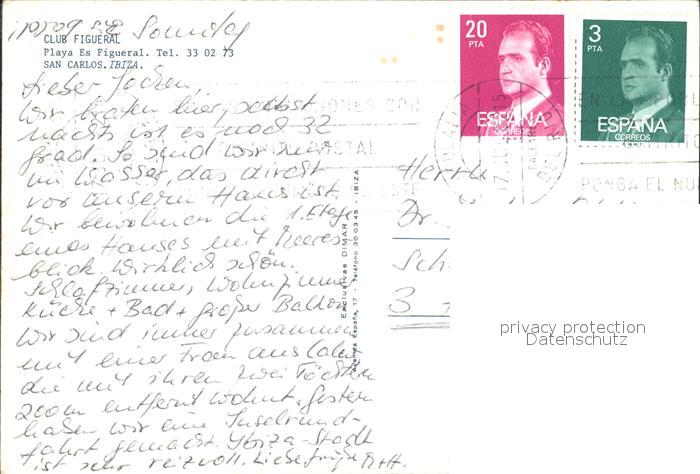 Sonntag
CLUB FIGUERAL
Playa Es Figueral. Tel. 33 02 73
SAN CARLOS. IBIZA.
Lieber Jochen,
wir braten hier, selbst
nachts ist es noch 32
Grad. So sind wir nur
im Wasser, das direkt
vor unserm Haus ist.
Wir bewohnen die 1. Etage
eines Hauses mit Meeres
blick. Wirklich schön.
Schlafzimmer, Wohnzimmer
Küche + Bad + großer Balkon
Wir sind immer zusammen
mit einer Frau aus
die mit ihren zwei Töchtern
200m entfernt wohnt. Gestern
haben wir eine Inselrund-
fahrt gemacht. Ibiza-Stadt
ist sehr reizvoll. Liebe Grüße
Exclusivas DIMAR
Avenida España, 17 - Teléfono 30 03 45 - IBIZA
20 PTA
ESPAÑA
CORREOS
3 PTA
ESPAÑA
CORREOS
PONGA EL
Herrn
Dr.
Sch
3
privacy protection
Datenschutz